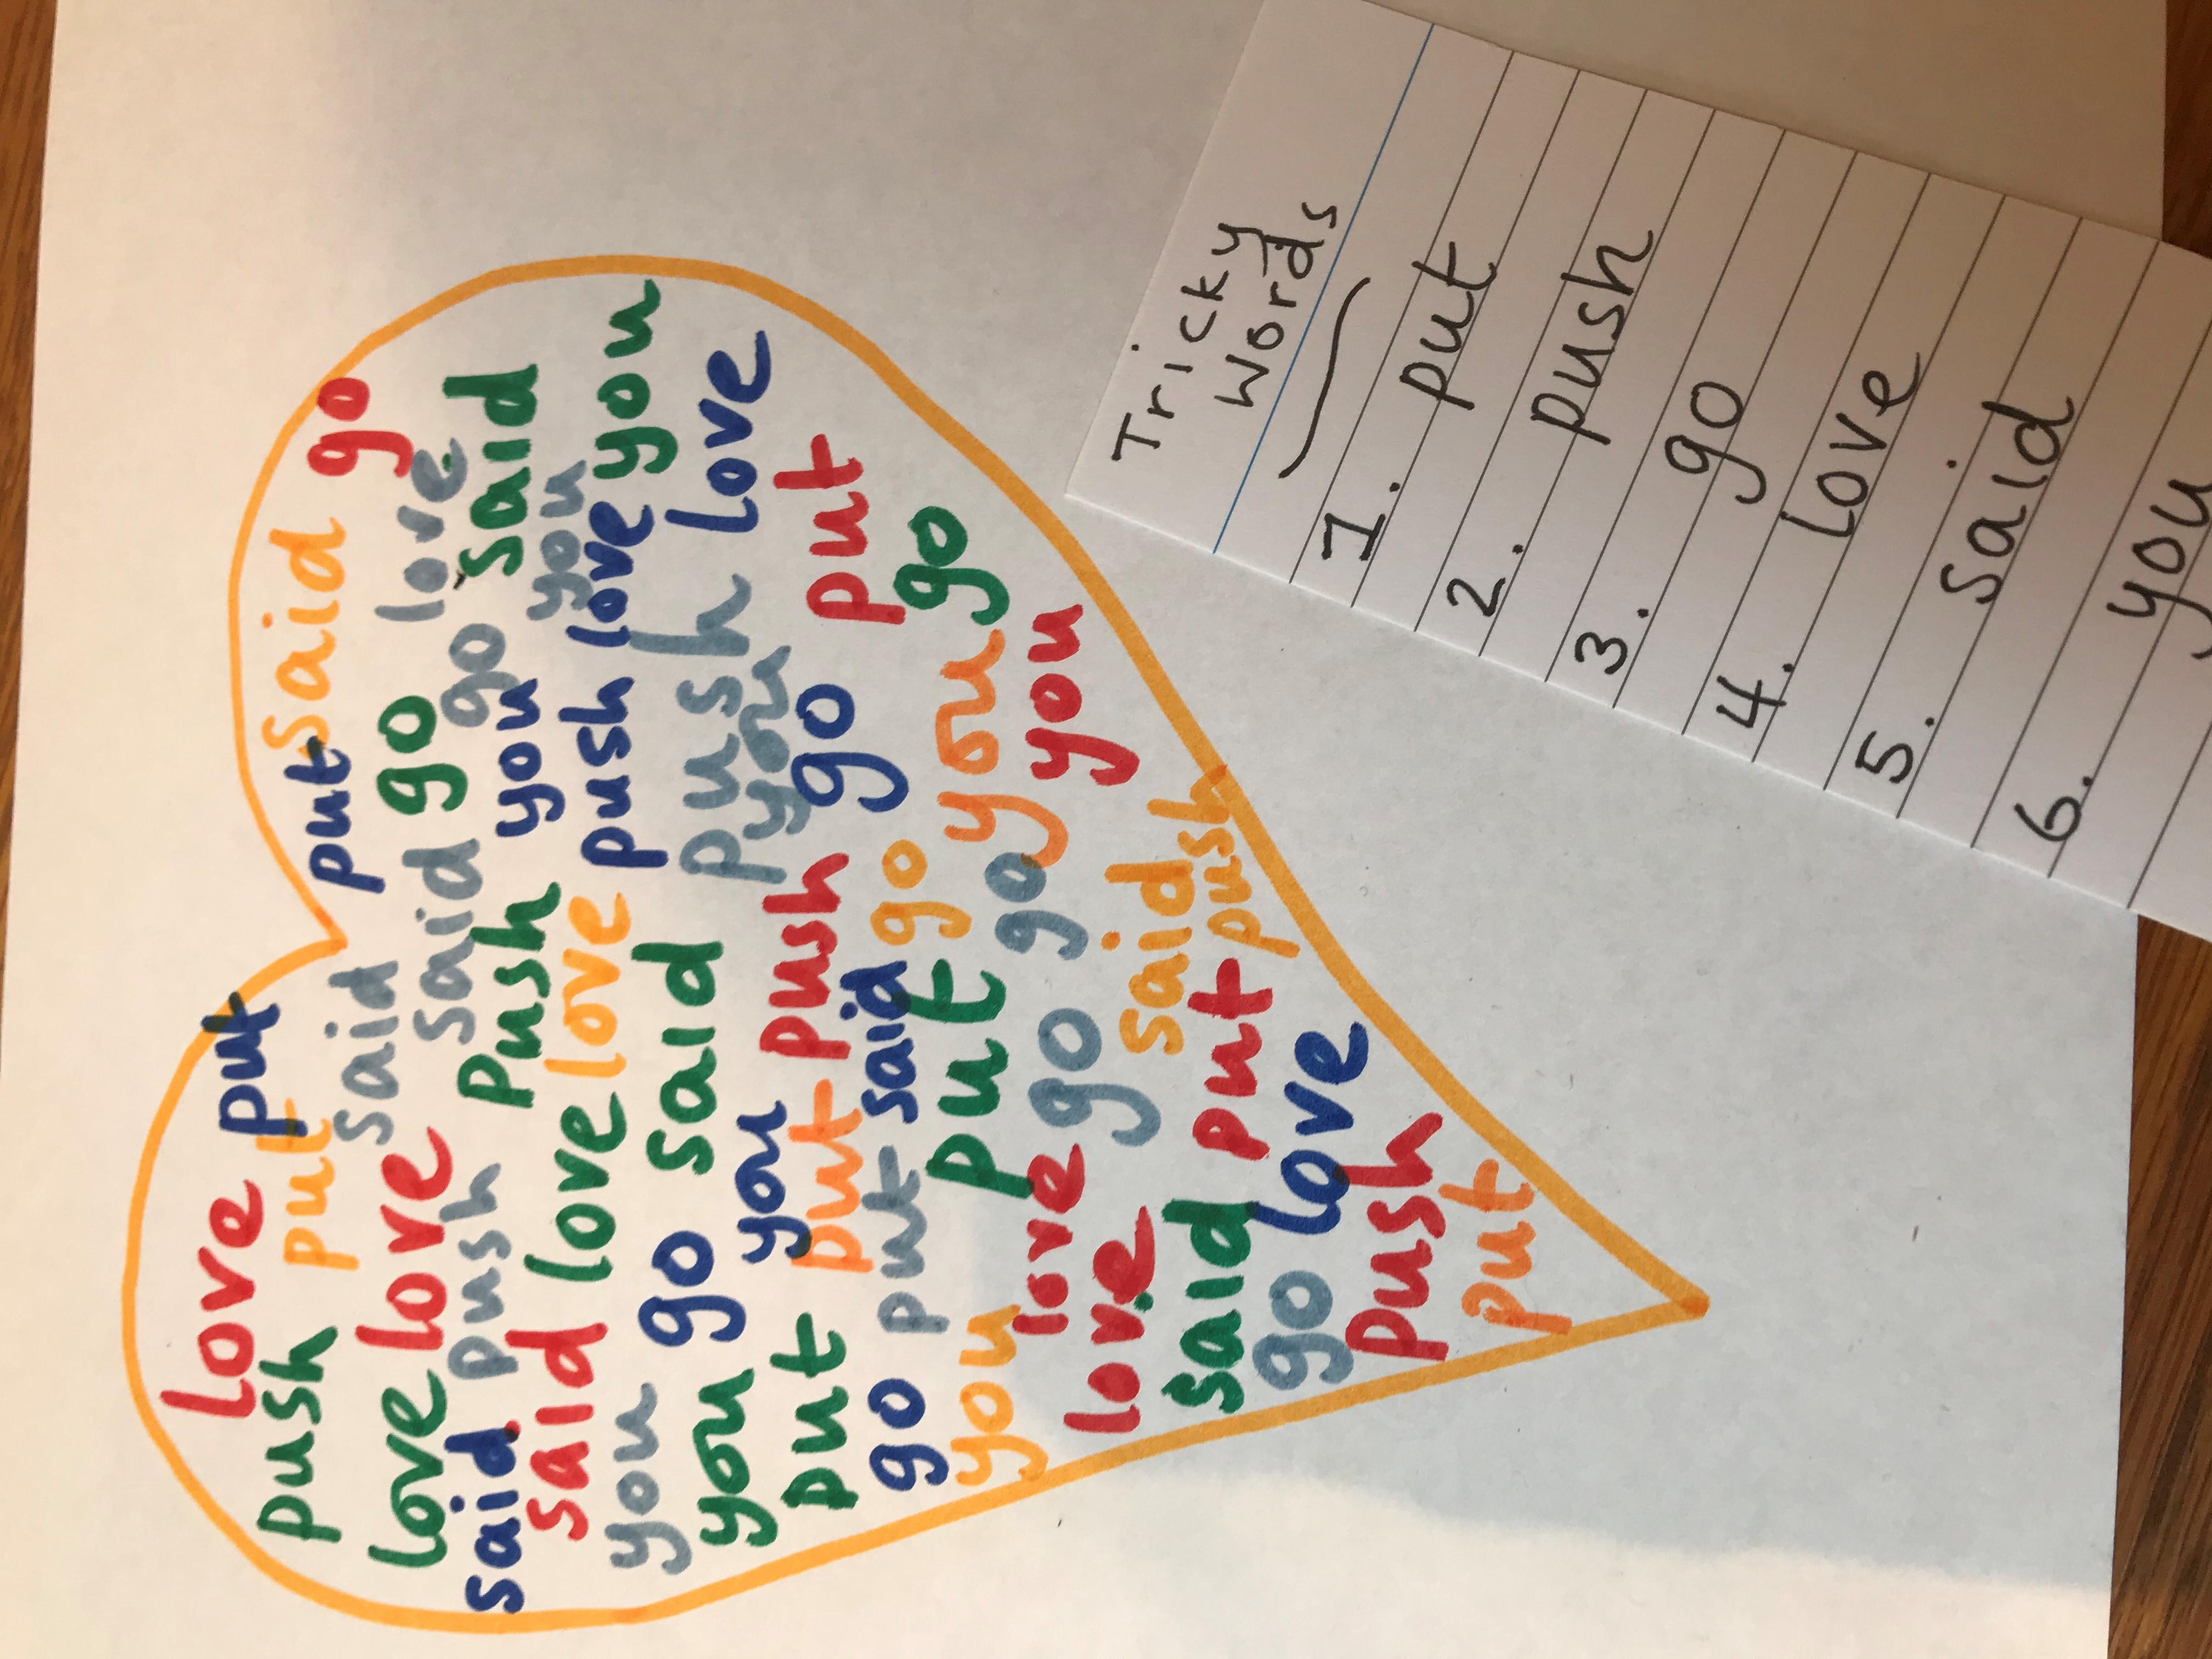 love put
push put put said go
said
love love said go love
said push push you go said
said love love push love you you
you go said push love
you you push you go put
put put said go
go put put go you go
you love go you
love said
said put push
go love
push
put
Tricky
Words
1. put
2. push
3. go
4. love
5. said
6. you